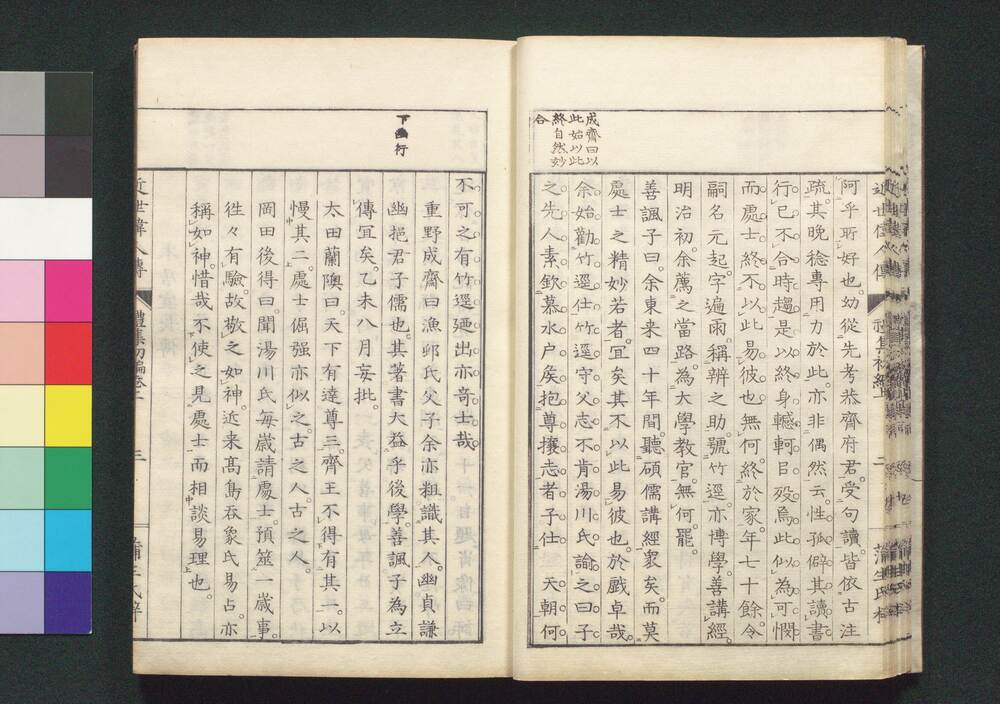 成齋曰以
此始以此
終自然妙
合
阿乎所好也幼從先考恭齊府君受句讀皆依古注
疏其晚稔專用力於此亦非偶然云性孤僻其讀書
行已不合時趨是以終身轗軻㠯歿焉此似為可憫
而處士終不以此易彼也無何終於家年七十餘令
嗣名元起字遍雨稱辨之助號竹逕亦博學善講經
明治初余薦之當路為大學教官無何罷
善諷子曰余東来四十年間聽碩儒講經衆矣而莫
處士之精妙若者宜矣其不以此易彼也於戲卓哉
余始勸竹逕仕竹逕守父志不肯湯川氏諭之曰子
之先人素欽慕水户矦抱尊攘志者子仕天朝何
下幽行
不可之有竹逕廼出亦奇士哉
重野成齋曰漁邨氏父子余亦粗識其人幽貞謙
幽挹君子儒也其著書大益乎後學善諷子為立
傳宜矣乙未八月妄批
太田蘭陵曰天下有達尊三齊王不得有其一以
慢其二處士倔强亦似之古之人古之人
岡田後得曰聞湯川氏每歳請處士預筮一歳事
徃々有驗故敬之如神近来髙島吞象氏易占亦
稱如神惜哉不使之見處士而相談易理也
近世偉人傳
禮集初編卷上
三
蒲生氏梓